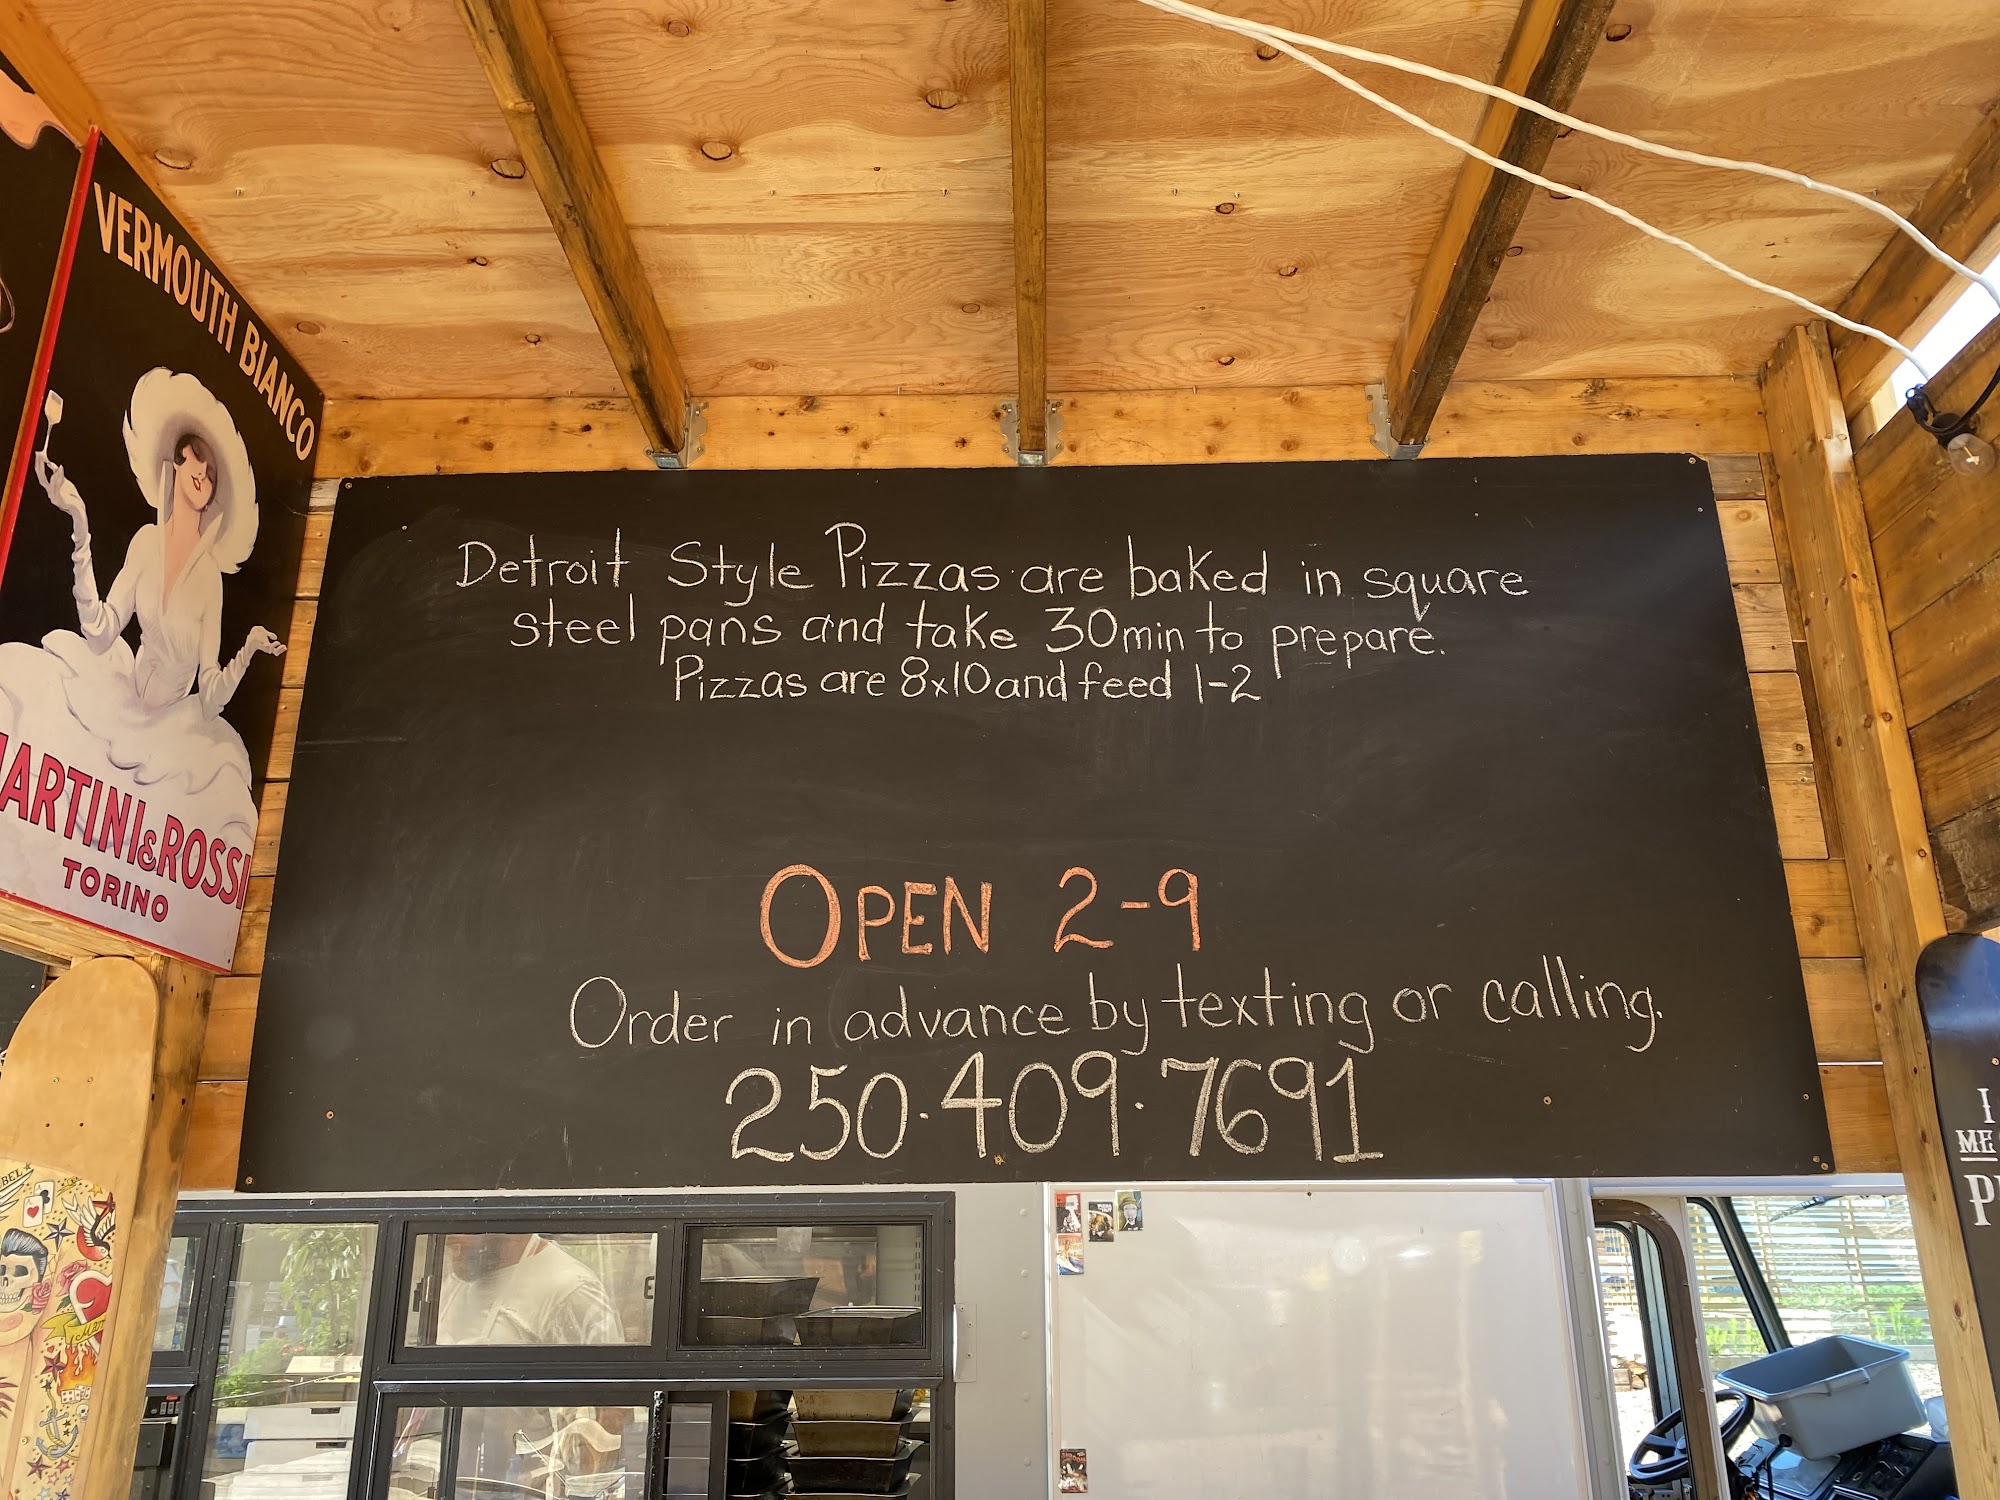 VERMOUTH BIANCO
MARTINI & ROSSI
TORINO
Detroit Style Pizzas are baked in square
steel pans and take 30min to prepare.
Pizzas are 8x10 and feed 1-2
OPEN 2-9
Order in advance by texting or calling.
250·409·7691
I
ME